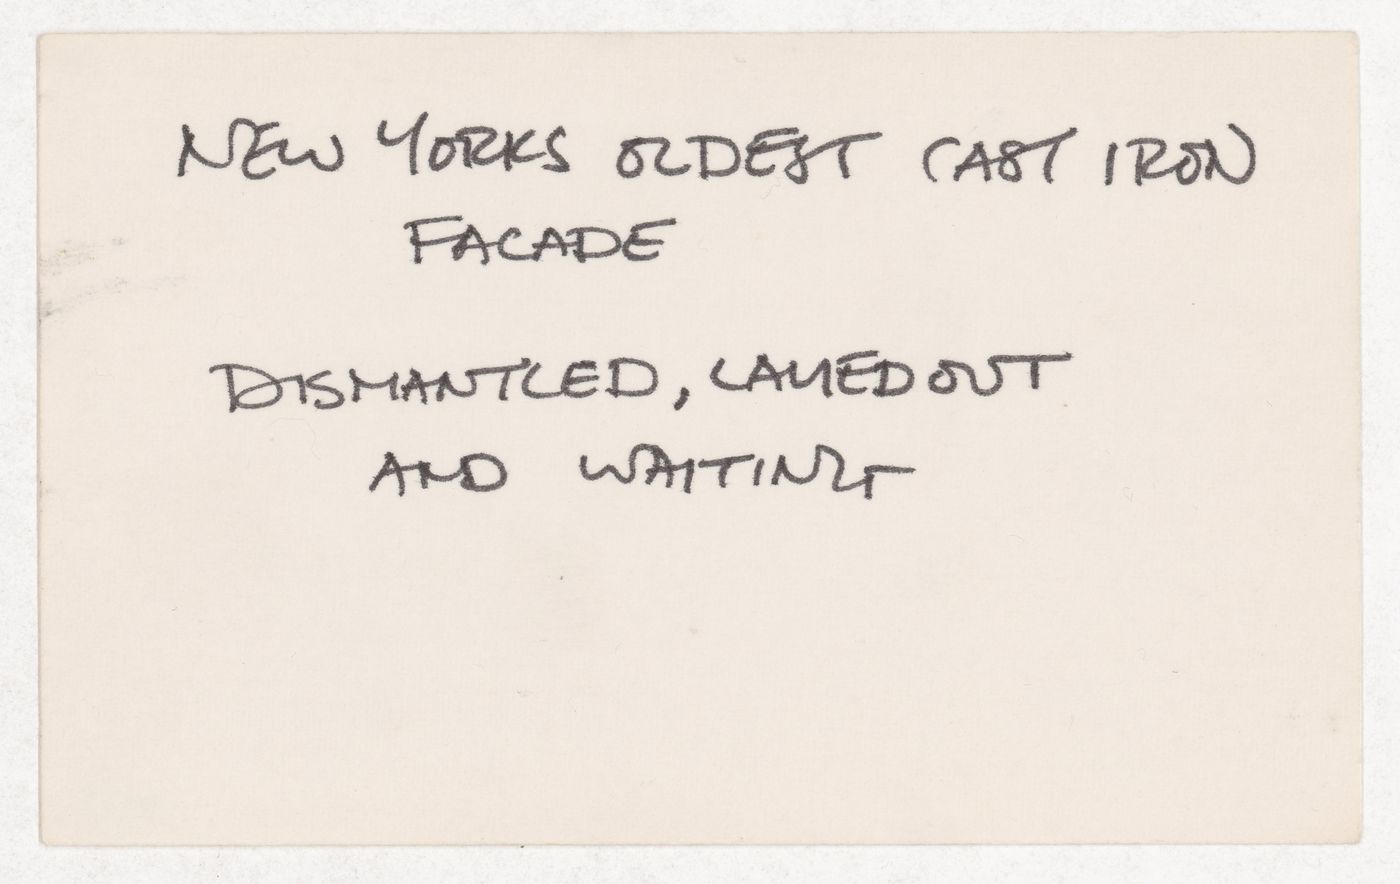 NEW YORKS OLDEST CAST IRON
FACADE
DISMANTLED, LAYEDOUT
AND WAITING